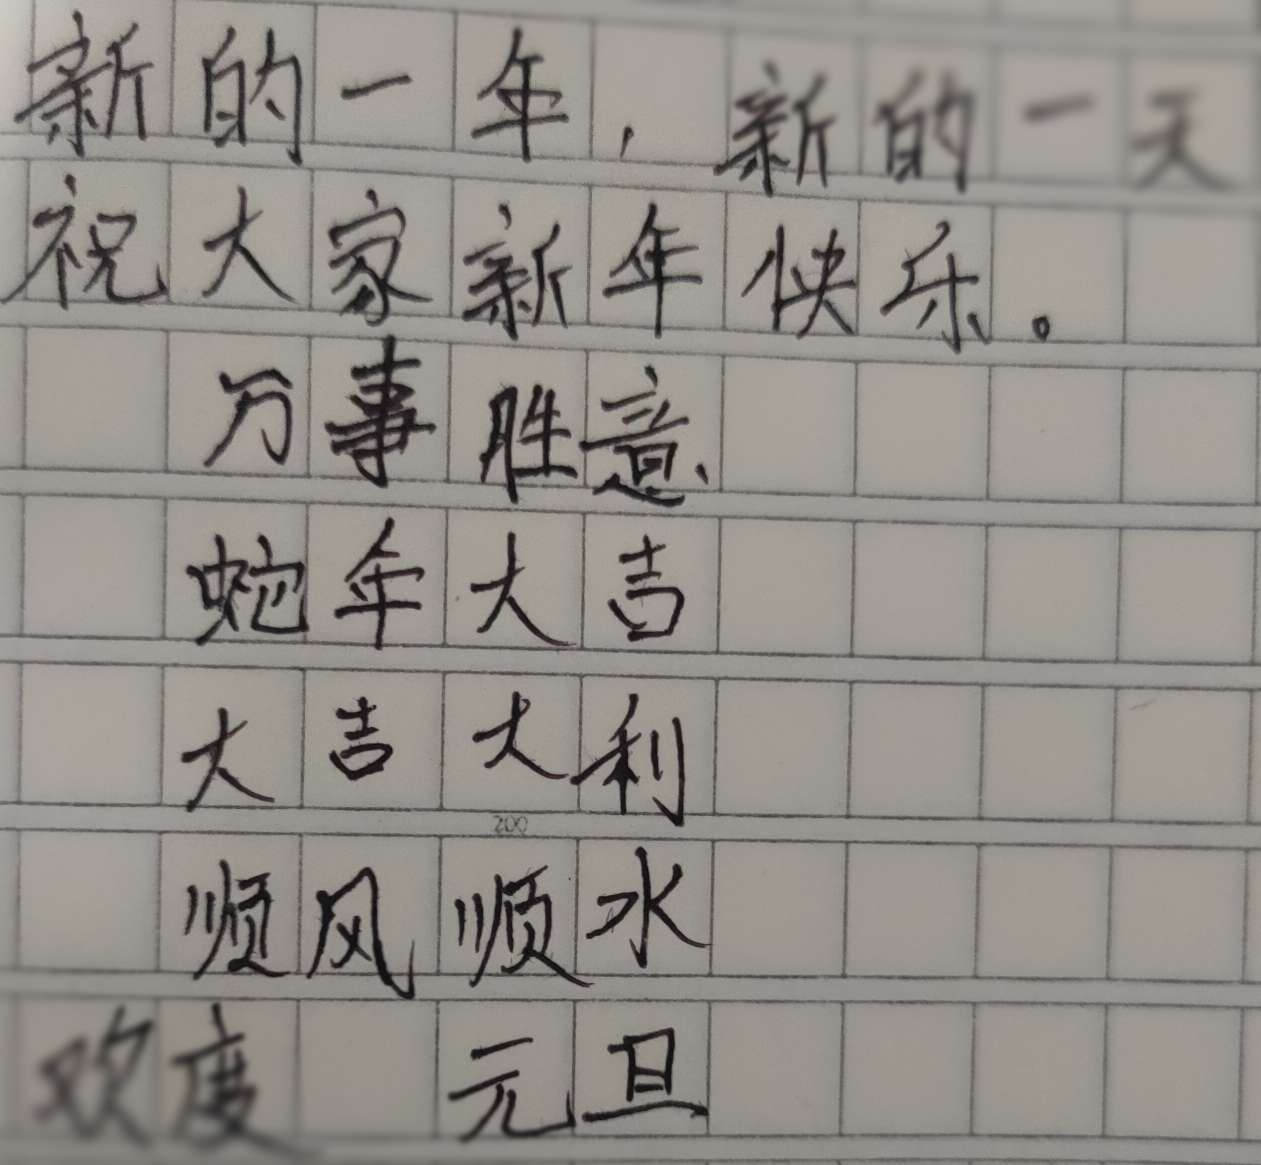 新的一年，新的一天
祝大家新年快乐。
万事胜意、
蛇年大吉
大吉大利
200
顺风顺水
欢度 元旦